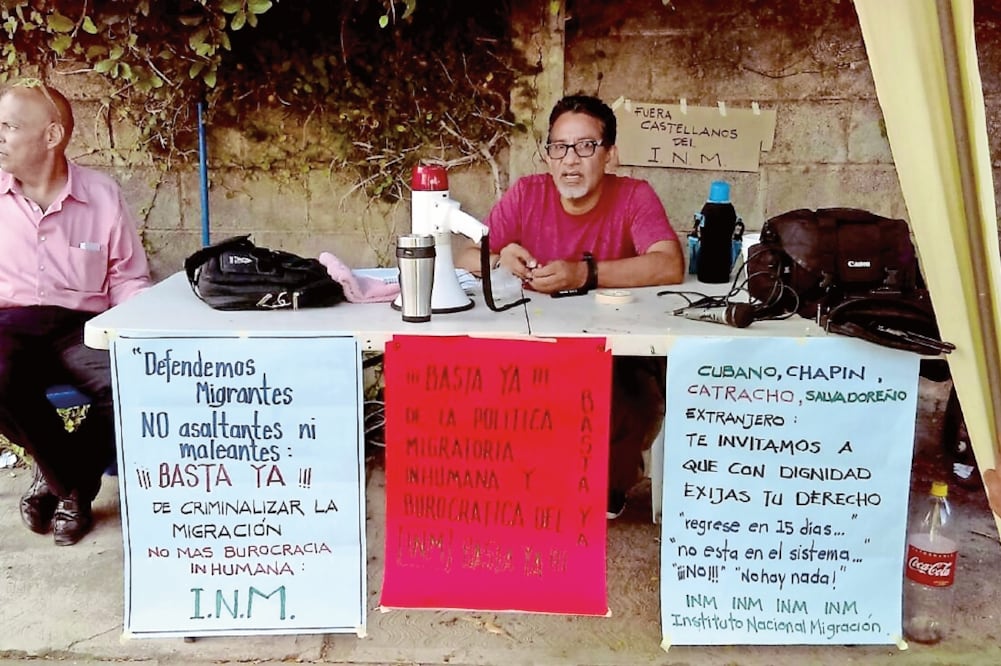 FUERA
CASTELLANOS
DEL
I.N.M.
Canon
"Defendemos
Migrantes
NO asaltantes ni
maleantes:
¡¡¡ BASTA YA !!!
DE CRIMINALIZAR LA
MIGRACIÓN
NO MAS BUROCRACIA
INHUMANA:
I.N.M.
¡¡¡ BASTA YA !!!
DE LA POLITICA
MIGRATORIA
INHUMANA Y
BUROCRATICA DEL
(INM) BASTA YA !!!
BASTA YA
CUBANO, CHAPIN,
CATRACHO, SALVADOREÑO
EXTRANJERO:
TE INVITAMOS A
QUE CON DIGNIDAD
EXIJAS TU DERECHO
"regrese en 15 días..."
"no esta en el sistema..."
"¡¡¡NO!!!" "No hay nada!"
INM INM INM INM
Instituto Nacional Migración.
Coca-Cola